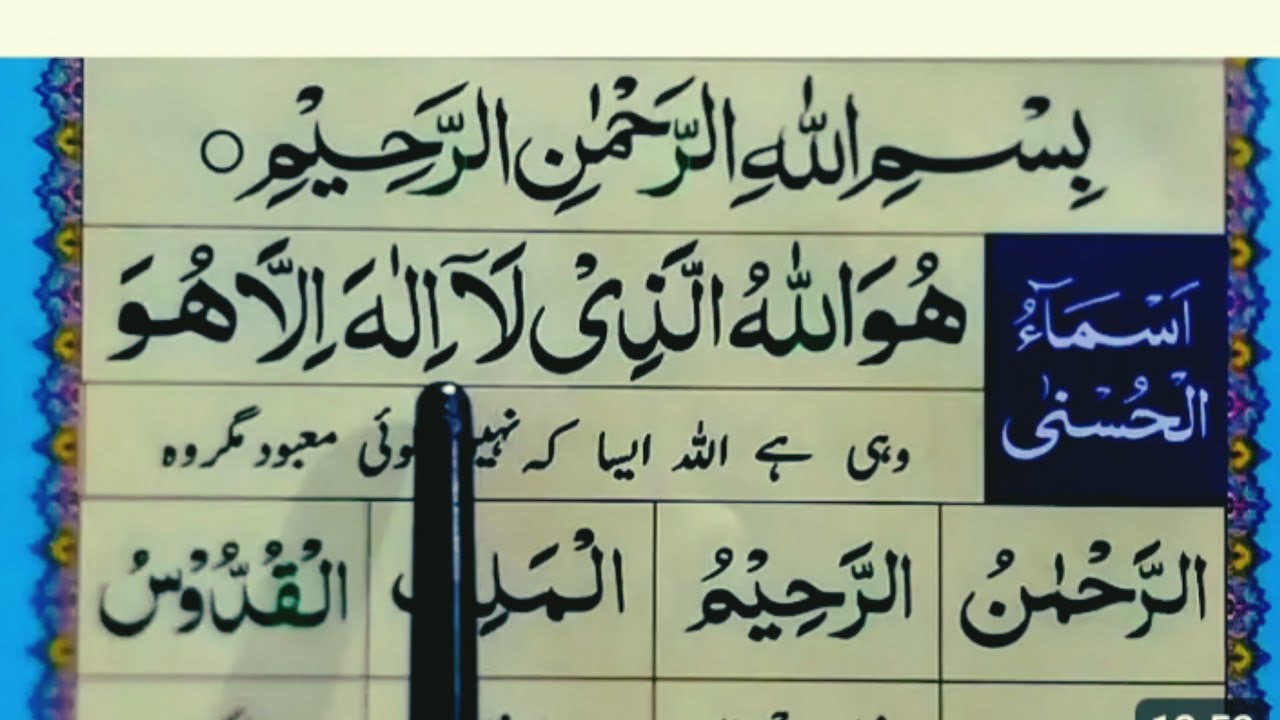 بِسْمِ اللّٰهِ الرَّحْمٰنِ الرَّحِيْمِ ○
اَسْمَآءُ
الْحُسْنٰى
هُوَ اللّٰهُ الَّذِىْ لَآ اِلٰهَ اِلَّا هُوَ
وہی ہے اللہ ایسا کہ نہیں کوئی معبود مگر وہ
الرَّحْمٰنُ الرَّحِيْمُ الْمَلِكُ الْقُدُّوْسُ